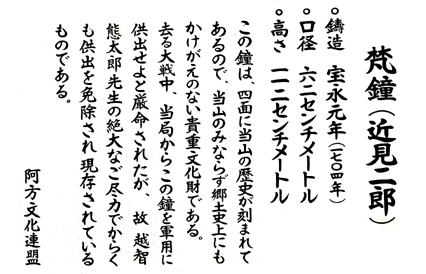 梵鐘（近見二郎）
◦鋳造　宝永元年（一七〇四年）
◦口径　六二センチメートル
◦高さ　一一二センチメートル
この鐘は、四面に当山の歴史が刻まれて
あるので、当山のみならず郷土史上にも
かけがえのない貴重文化財である。
去る大戦中、当局からこの鐘を軍用に
供出せよと厳命されたが、故 越智
熊太郎先生の絶大なご尽力でからく
も供出を免除され現存されている
ものである。
阿方文化連盟